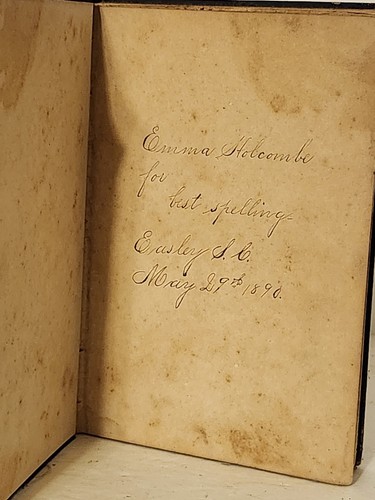 Emma Holcombe
for
best spelling.
Easley S.C.
May 29th 1890.